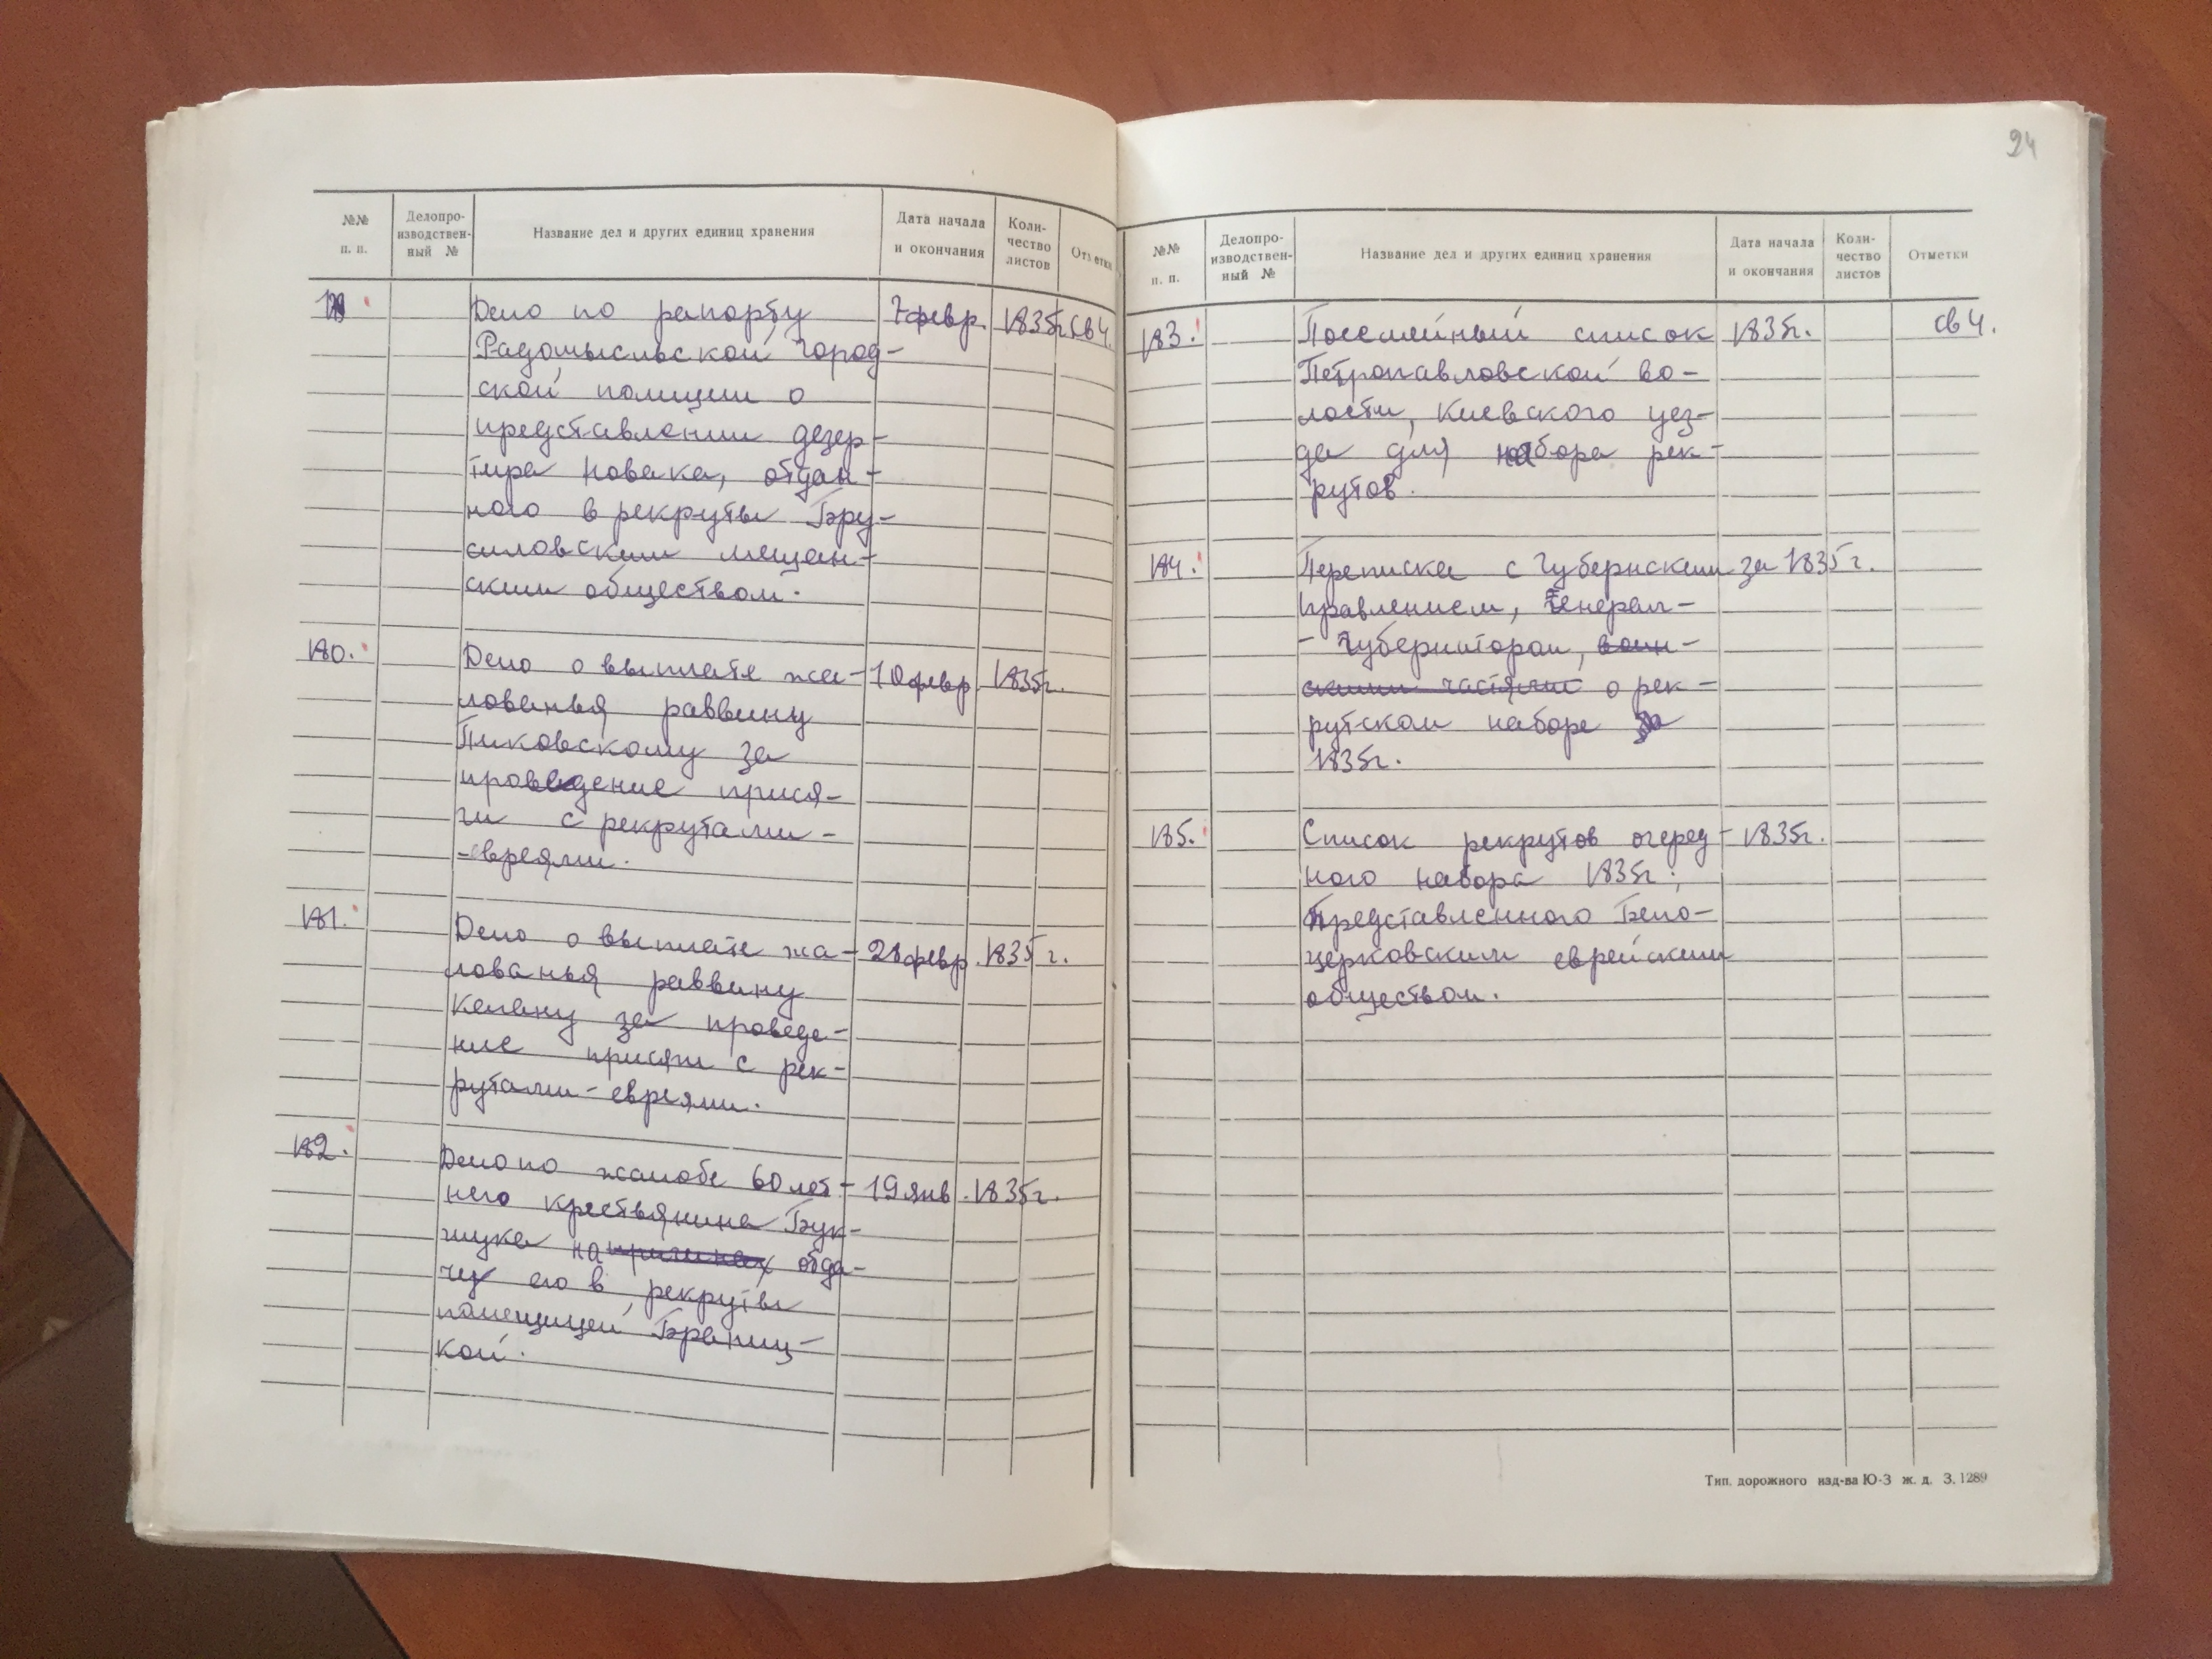 №№ п. п.
Делопро-
изводствен-
ный №
Название дел и других единиц хранения
Дата начала
и окончания
Коли-
чество
листов
Отметки
Дело по рапорту 7 февр. 1835г. св 4.
Радомысльской город-
ской полиции о
представлении дезер-
тира Новака, отдан-
ного в рекруты Бру-
силовским мещан-
ским обществом.
180. Дело о выплате жа- 10 февр. 1835г.
лованья раввину
Пиковскому за
проведение прися-
ги с рекрутами-
-евреями.
181. Дело о выплате жа- 28 февр. 1835 г.
лованья раввину
за проведе-
ние присяги с рек-
рутами-евреями.
182. Дело по жалобе 60 лет- 19 янв. 1835г.
него крестьянина Бук-
на отда-
чу его в рекруты
помещицей Браниц-
кой.
24
№№
п. п.
Делопро-
изводствен-
ный №
Название дел и других единиц хранения
Дата начала
и окончания
Коли-
чество
листов
Отметки
183. Посемейный список 1835г. св 4.
Петропавловской во-
лости, Киевского уез-
да для набора рек-
рутов.
184. Переписка с Губернским за 1835 г.
правлением, Генерал-
-Губернатором, воин-
скими частями о рек-
рутском наборе за
1835г.
185. Список рекрутов очеред- 1835г.
ного набора 1835г.,
Представленного Бело-
церковским еврейским
обществом.
Тип. дорожного изд-ва Ю-З ж. д. З. 1289